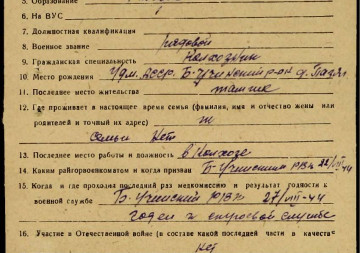 5. Образование
6. На ВУС
7. Должностная квалификация
8. Военное звание рядовой
9. Гражданская специальность Колхозник
10. Место рождения Удм. АССР. Б-Учинский р-он д. 
11. Последнее место жительства там же
12. Где проживает в настоящее время семья (фамилия, имя и отчество жены или
родителей и точный их адрес)
семьи нет
13. Последнее место работы и должность в Колхозе
14. Каким райгорвоенкоматом и когда призван Б-Учинским РВК 22/VIII-44
15. Когда и где проходил последний раз медкомиссию и результат годности к
военной службе Б-Учинский РВК 27/VIII-44
годен к строевой службе
16. Участие в Отечественной войне (в составе какой последней части в качестве
нет